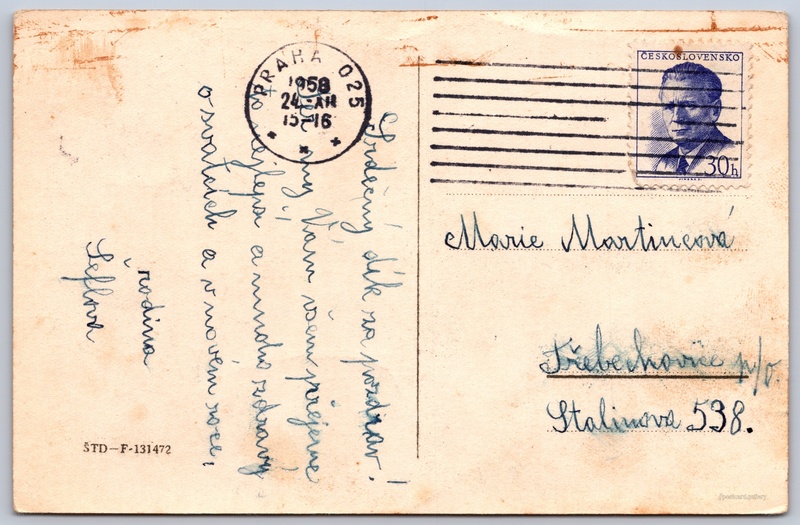 PRAHA 025
1958
24.XII
15-16
ČESKOSLOVENSKO
30h
Srdečný dík za pozdrav!
my Vám všem přejeme
to nejlepší a mnoho zdraví
o svatcích a v novém roce.
rodina
Šeflova
Marie Martincová
Třebechovice p/O.
Stalinova 538.
ŠTD—F-131472